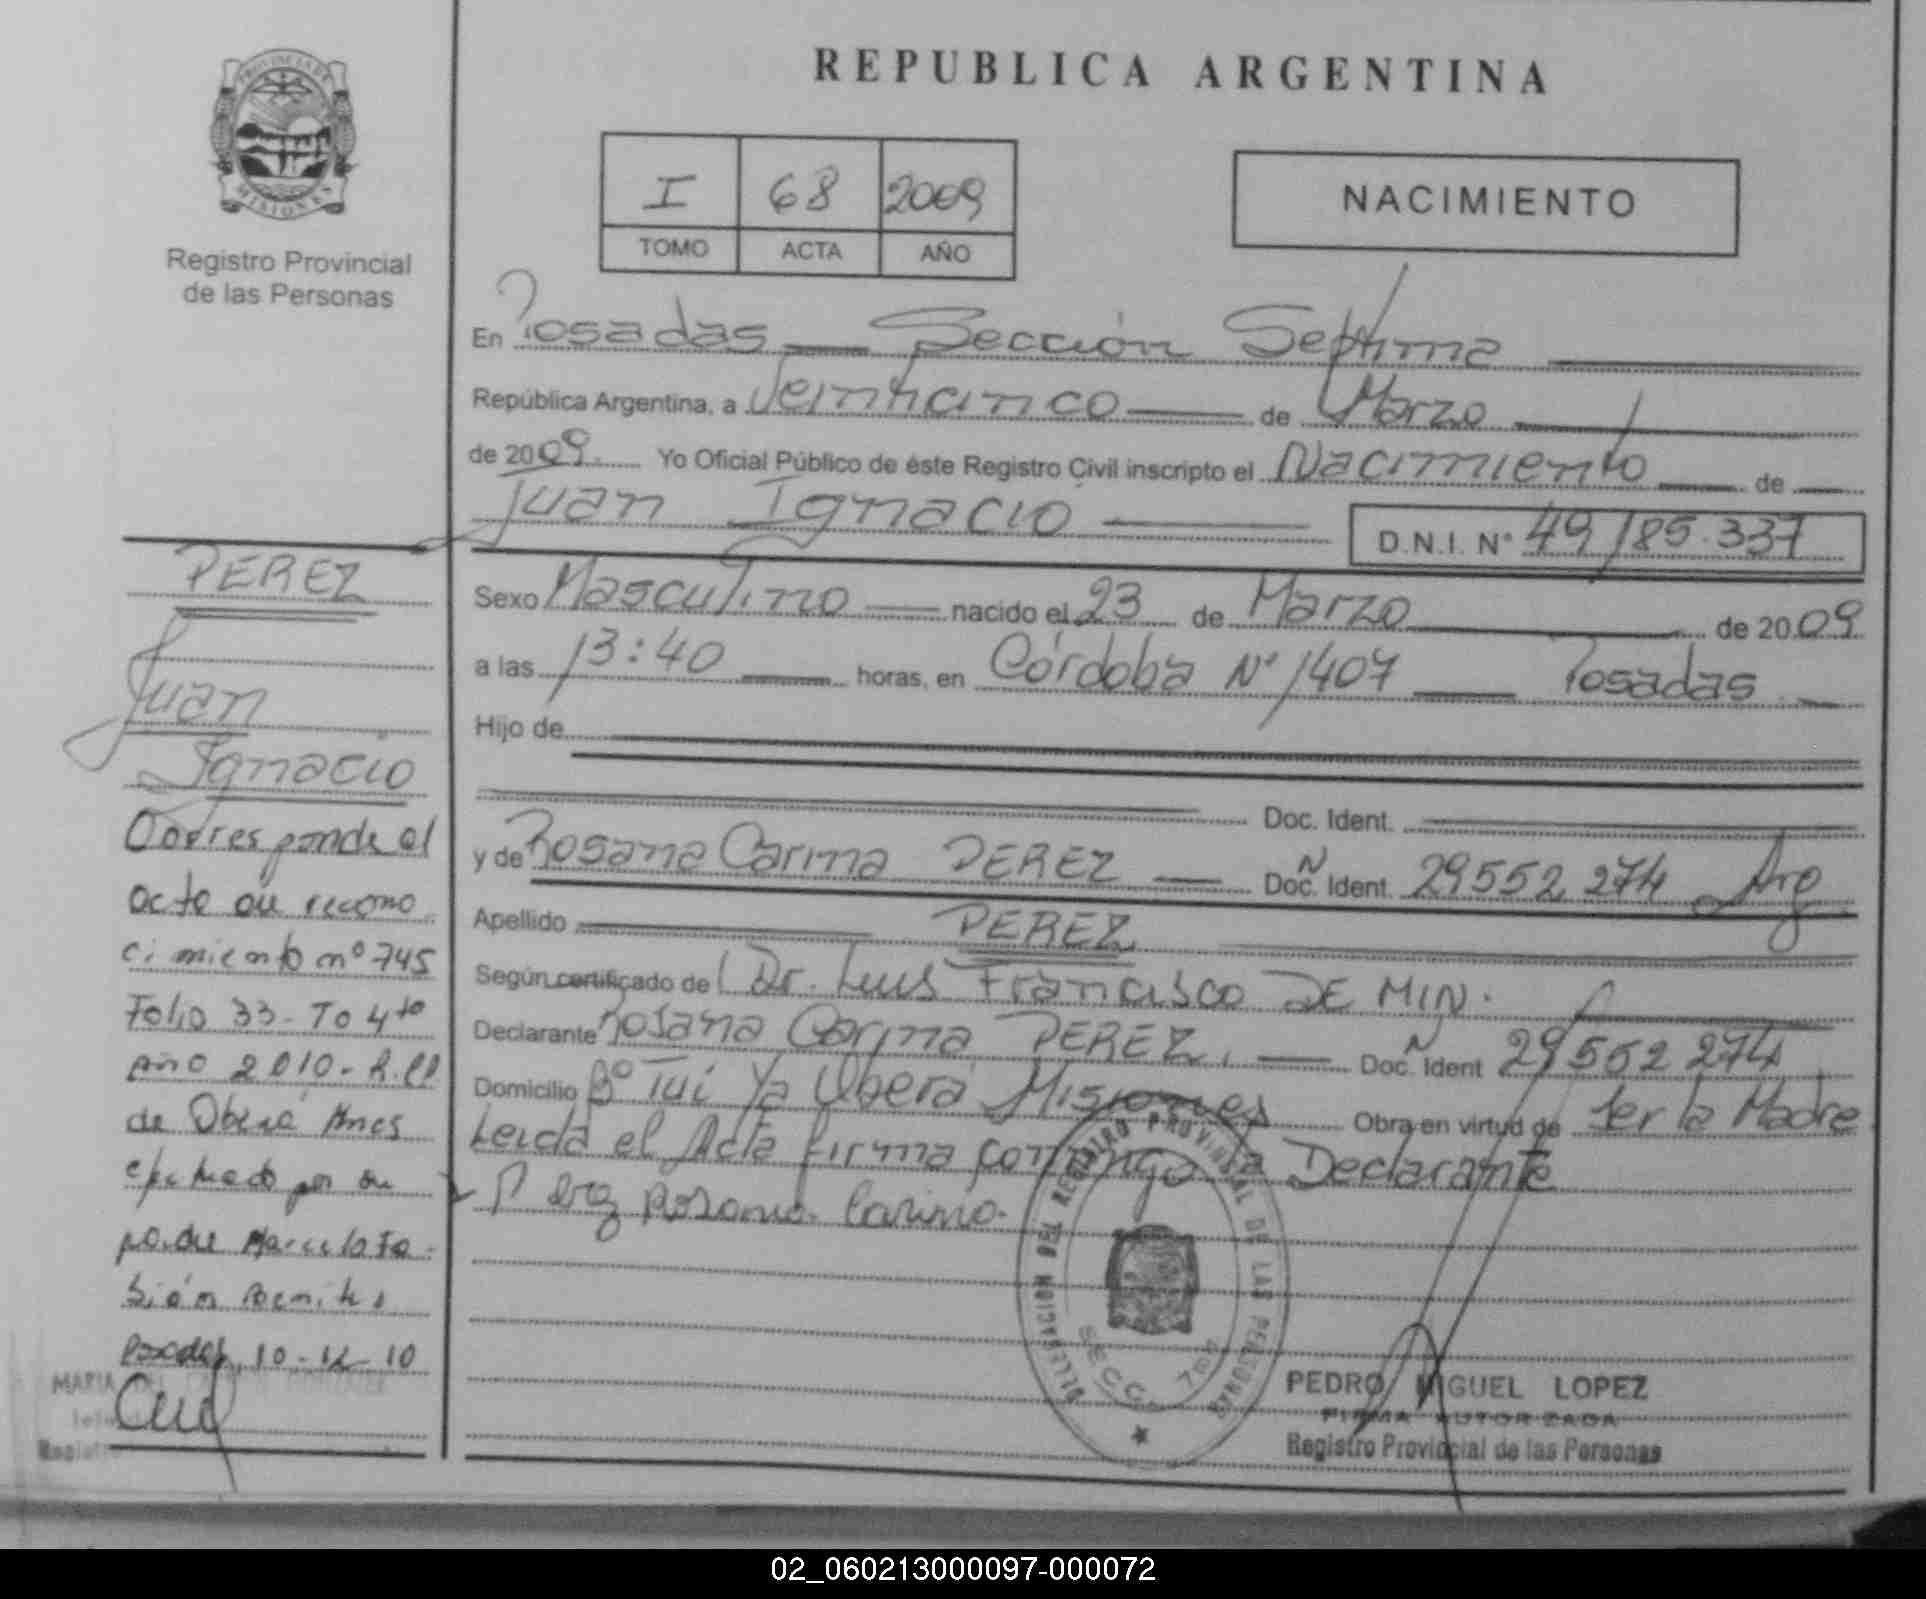 PROVINCIA DE
MISIONES
Registro Provincial
de las Personas
REPUBLICA ARGENTINA
I 68 2009
TOMO ACTA AÑO
NACIMIENTO
En Posadas Sección Septima
República Argentina, a Veinticinco de Marzo
de 2009. Yo Oficial Público de éste Registro Civil inscripto el Nacimiento de
Juan Ignacio D.N.I. N° 49185.337
Sexo Masculino nacido el 23 de Marzo de 2009
a las 13:40 horas, en Córdoba N° 1407 Posadas
Hijo de
Doc. Ident.
y de Rosana Carina PEREZ Doc. Ident. 29552274 Arg
Apellido PEREZ
Según certificado de Dr. Luis Francisco DE MIN.
Declarante Rosana Carina PEREZ, Doc. Ident 29552274
Domicilio B° Tuí Ya Oberá Misiones Obra en virtud de Ser la Madre
Leida el Acta firma conmigo la Declarante
Rosana Carina.
DELEGACION DEL REGISTRO PROVINCIAL DE LAS PERSONAS
SECC. 7ma
PEDRO MIGUEL LOPEZ
FIRMA AUTORIZADA
Registro Provincial de las Personas
PEREZ
Juan
Ignacio
Corresponde al
acta de recono
cimiento n° 745
Folio 33 - To 4to
Año 2010 -
de Oberá Mnes
efectuado por su
padre Marcelo Fa-
bián Benitez
Posadas, 10-12-10
MARIA DEL
02_060213000097-000072